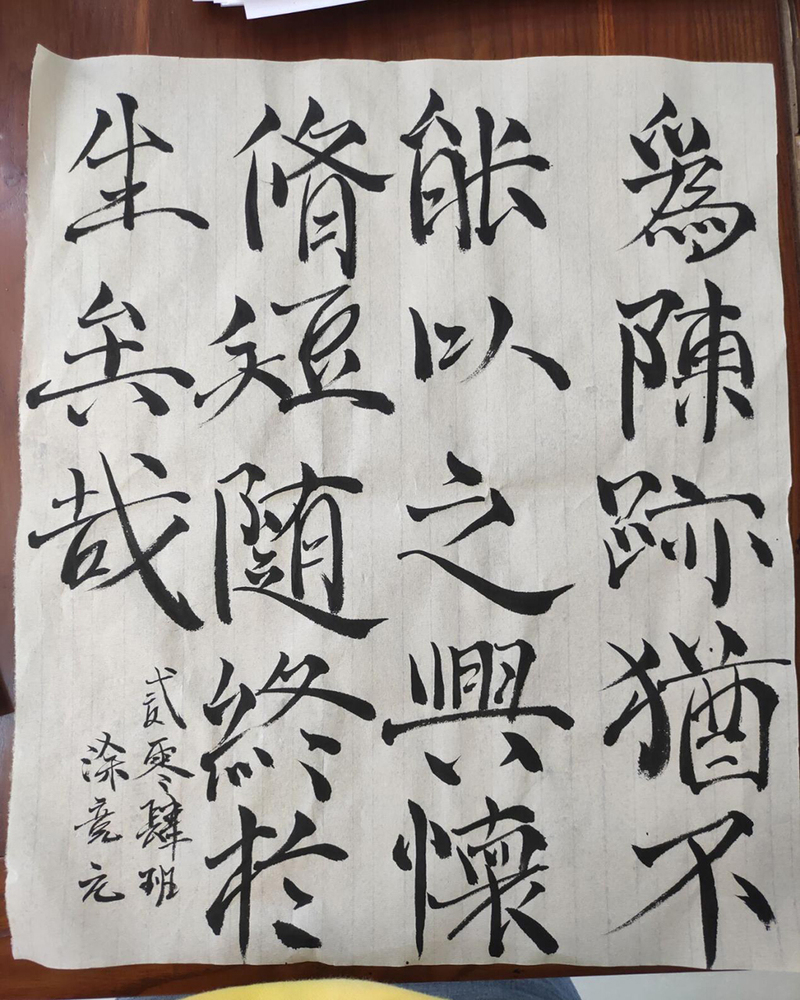 爲陳跡猶不
能以之興懷
脩短随終於
生矣哉
貳零肆班
涂元